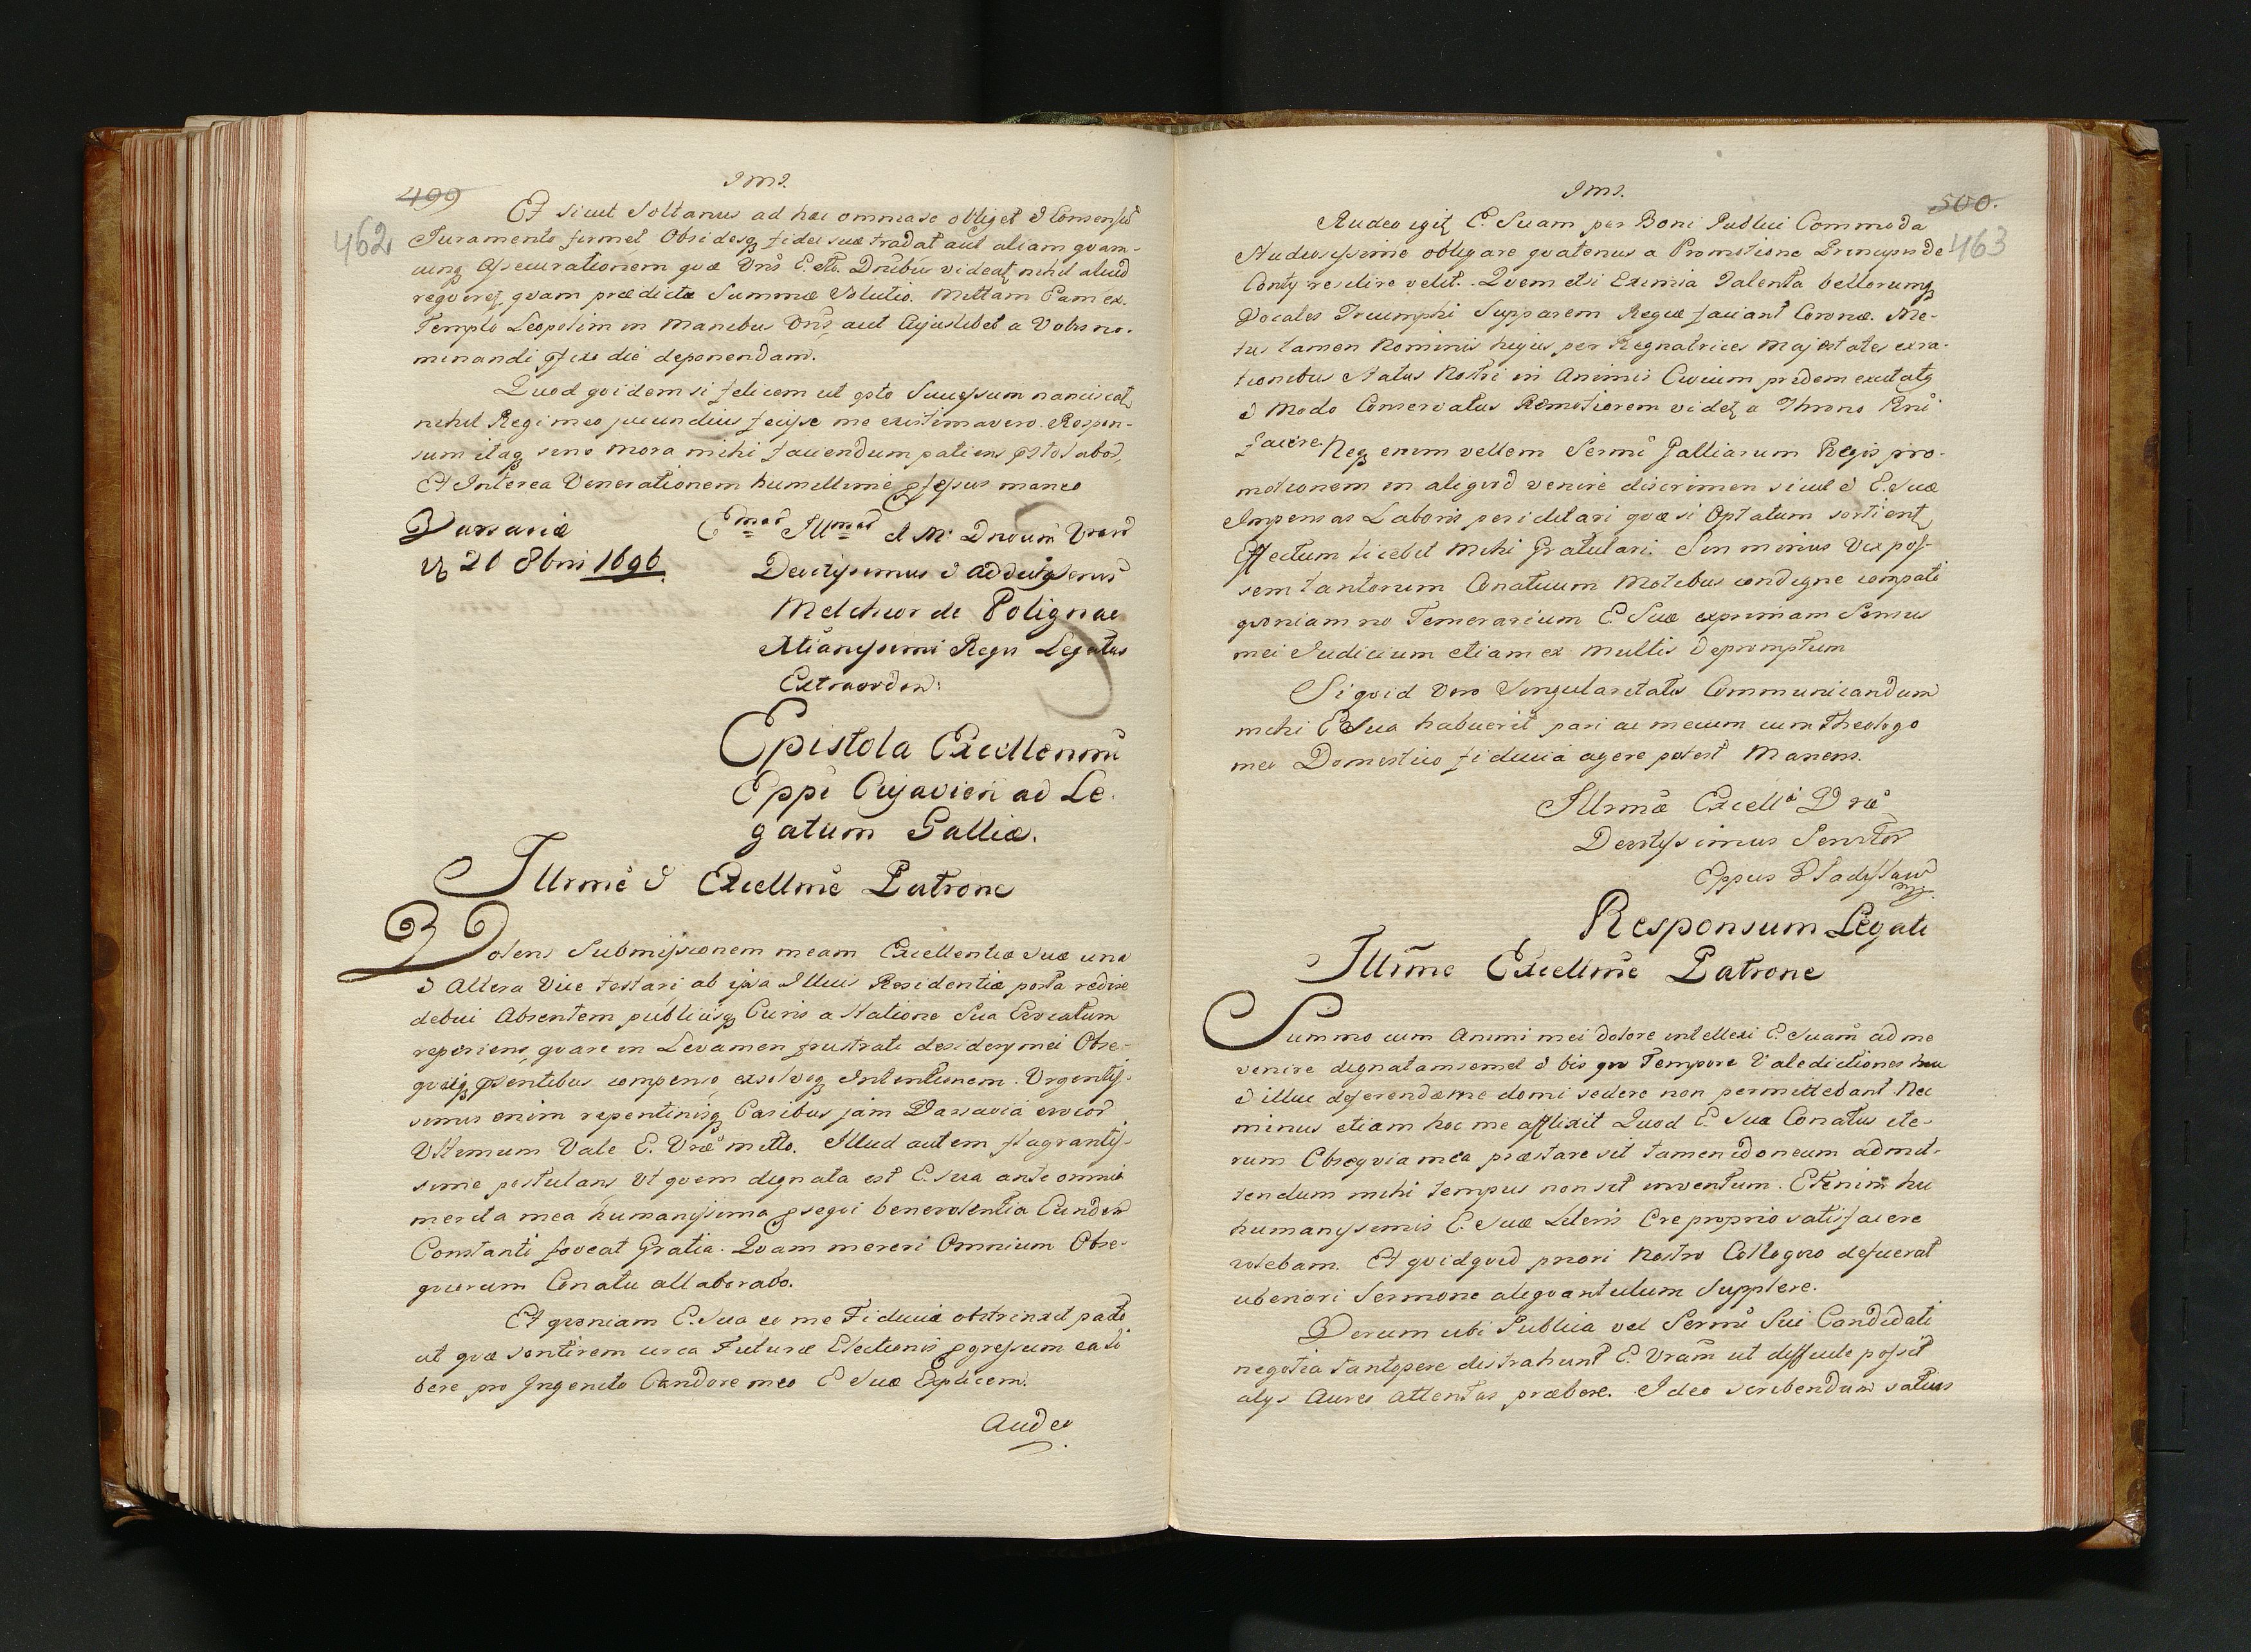 499
462
Et sicut Soltanus ad hæc omnia se obliget & Consensū
Juramento firmet Obsidesq; fidei suæ tradat aut aliam quam-
cunq; Assecurationem quæ Vrīs E. Dnībus videat, nihil aliud
requiret, quam prædictæ Summæ Solutio. Mittam Eam ex.
Templo Leopolim in manibus Vrīs, aut Cujuslibet a Vobis no-
minandi pfixo die deponendam.
Quod quidem si felicem ut opto Successum nanciscat,
nihil Regi meo jucundius fecisse me existimavero. Respon-
sum itaq; sine mora mihi faciendum patiens pstolabor,
Et Interea Venerationem humillime pfessus maneo
Varsaviæ
26 8bris 1696
Emar Illmar et Dnoum Vrarū
Devctissimus & addictss
Melchior de Polignac
Xtianissimi Regis Legatus
Extraordin:
Epistola Excellenmi
Eppi Cujavien ad Le-
gatum Galliæ.
Illrme & Excellme Patrone
Volens Submissionem meam Excellentiæ Suæ una
& Altera Vice testari ab ipsa Illius Residentiæ porta redire
debui Absentem publicisq; Curis a Statione Sua Evocatum
reperiens, quare in Levamen frustrati desiderij mei Obse-
quiiq; psentibus compenso, exsolvoq; Intentionem. Urgentis-
simis enim repentinisq; Casibus jam Varsavia evocor
Ultimum Vale E. Vræ mitto. Illud autem flagrantis-
sime postulans Ut quem dignata est E. Sua ante omnia
merita mea humanissima psequi benevolentia Eundem
Constanti foveat Gratia. Quam mereri Omnium Obse-
quiorum Conatu allaborabo.
Et quoniam E. Sua eo me Fiducia obstrinxit pacto
ut quæ sentirem circa Futuræ Electionis pgressum ea li
bere pro Ingenito Candore meo E Suæ Explicem.
Audeo
500.
463
Audeo igit, E. Suam per Boni Publici Commoda
Studiosissime obligare quatenus a Promotione Principis de
Conty resilire velit. Quem etsi Eximia Talenta bellorumq;
Vocales Triumphi Supparem Regiæ faciant Coronæ. Me-
tus tamen Nominis hujus per Regnatrices Majestates exra-
tionibus Status Nostri in Animis Civium pridem excitatq
& modo Conservatus Remotiorem videt, a Throno Rni
facere. Neq; enim vellem Sermi Galliarum Regis pro-
motionem in aliquod venire discrimen sicut & E. Suæ
Impensas Laboris periclitari quæ si Optatum sortient,
Effectum licebit mihi Gratulari. Sin minus Vix pos-
sem tantorum Conatuum Motibus condigne compati
quoniam no Temerarium E. Suæ exprimam Sensus
mei Judicium etiam ex multis Depromptum
Siquid Vero Singularitatis Communicandum
mihi E Sua habuerit pari ac mecum cum Theologo
meo Domestico fiducia agere potest Manens.
Illrmæ Excellæ Vræ
Devctissimus Servitor
Eppus Vladislaw
Responsum Legati
Illrme Excellme Patrone
Summo cum Animi mei dolore intellexi E. Suam ad me
venire dignatam semel & bis quo Tempore Valedictiones huc
& illuc deferendæ me domi sedere non permittebant Nec
minus etiam hoc me afflixit Quod E. Sua Conatus ite-
rum Obsequia mea præstare sit tamen idoneum admit-
tendum mihi tempus non sit inventum. Etenim hu
humanissimis E. Suæ Literis Ore proprio satisfacere
volebam. Et quidquid priori Nostro Colloquio defuerat
uberiori Sermone aliquantulum Supplere.
Verum ubi Publica vel Sermi Sui Candidati
negotia tantopere distrahunt E. Vram ut difficile possit
alijs Aures attentas præbere. Ideo scribendum satius